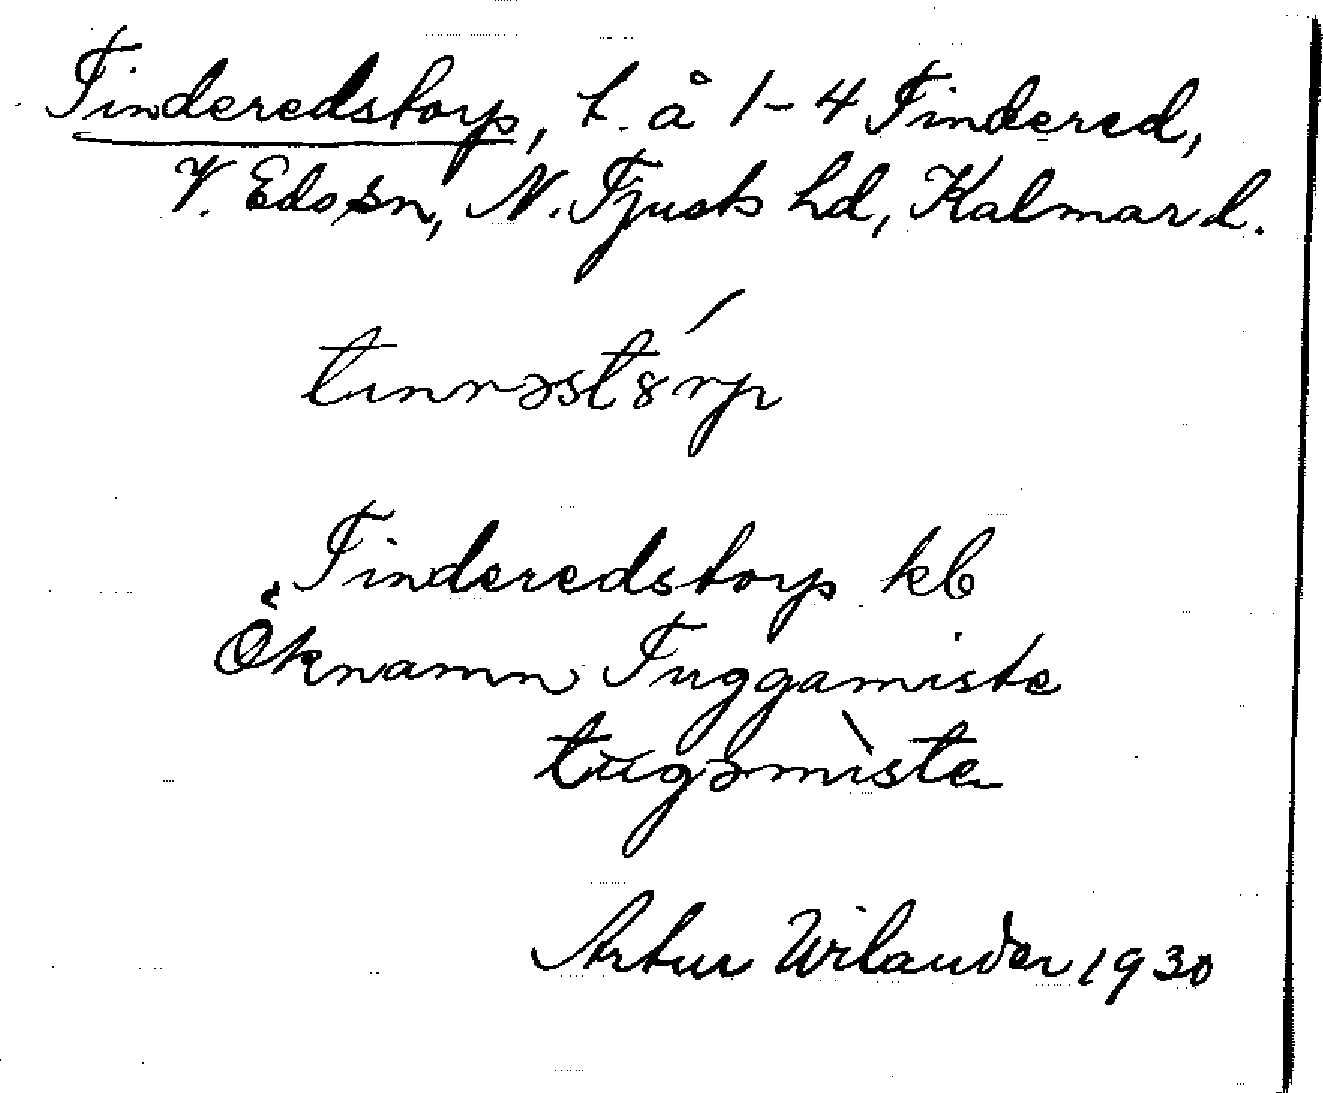 Tinderedstorp, t. å 1-4 Tindered,
V. Eds sn, N. Tjusts hd, Kalmar l.
tinrəst8́rp
Tinderedstorp kb
Öknamn Tuggamiste
tugəmìste
Artur Wilander 1930